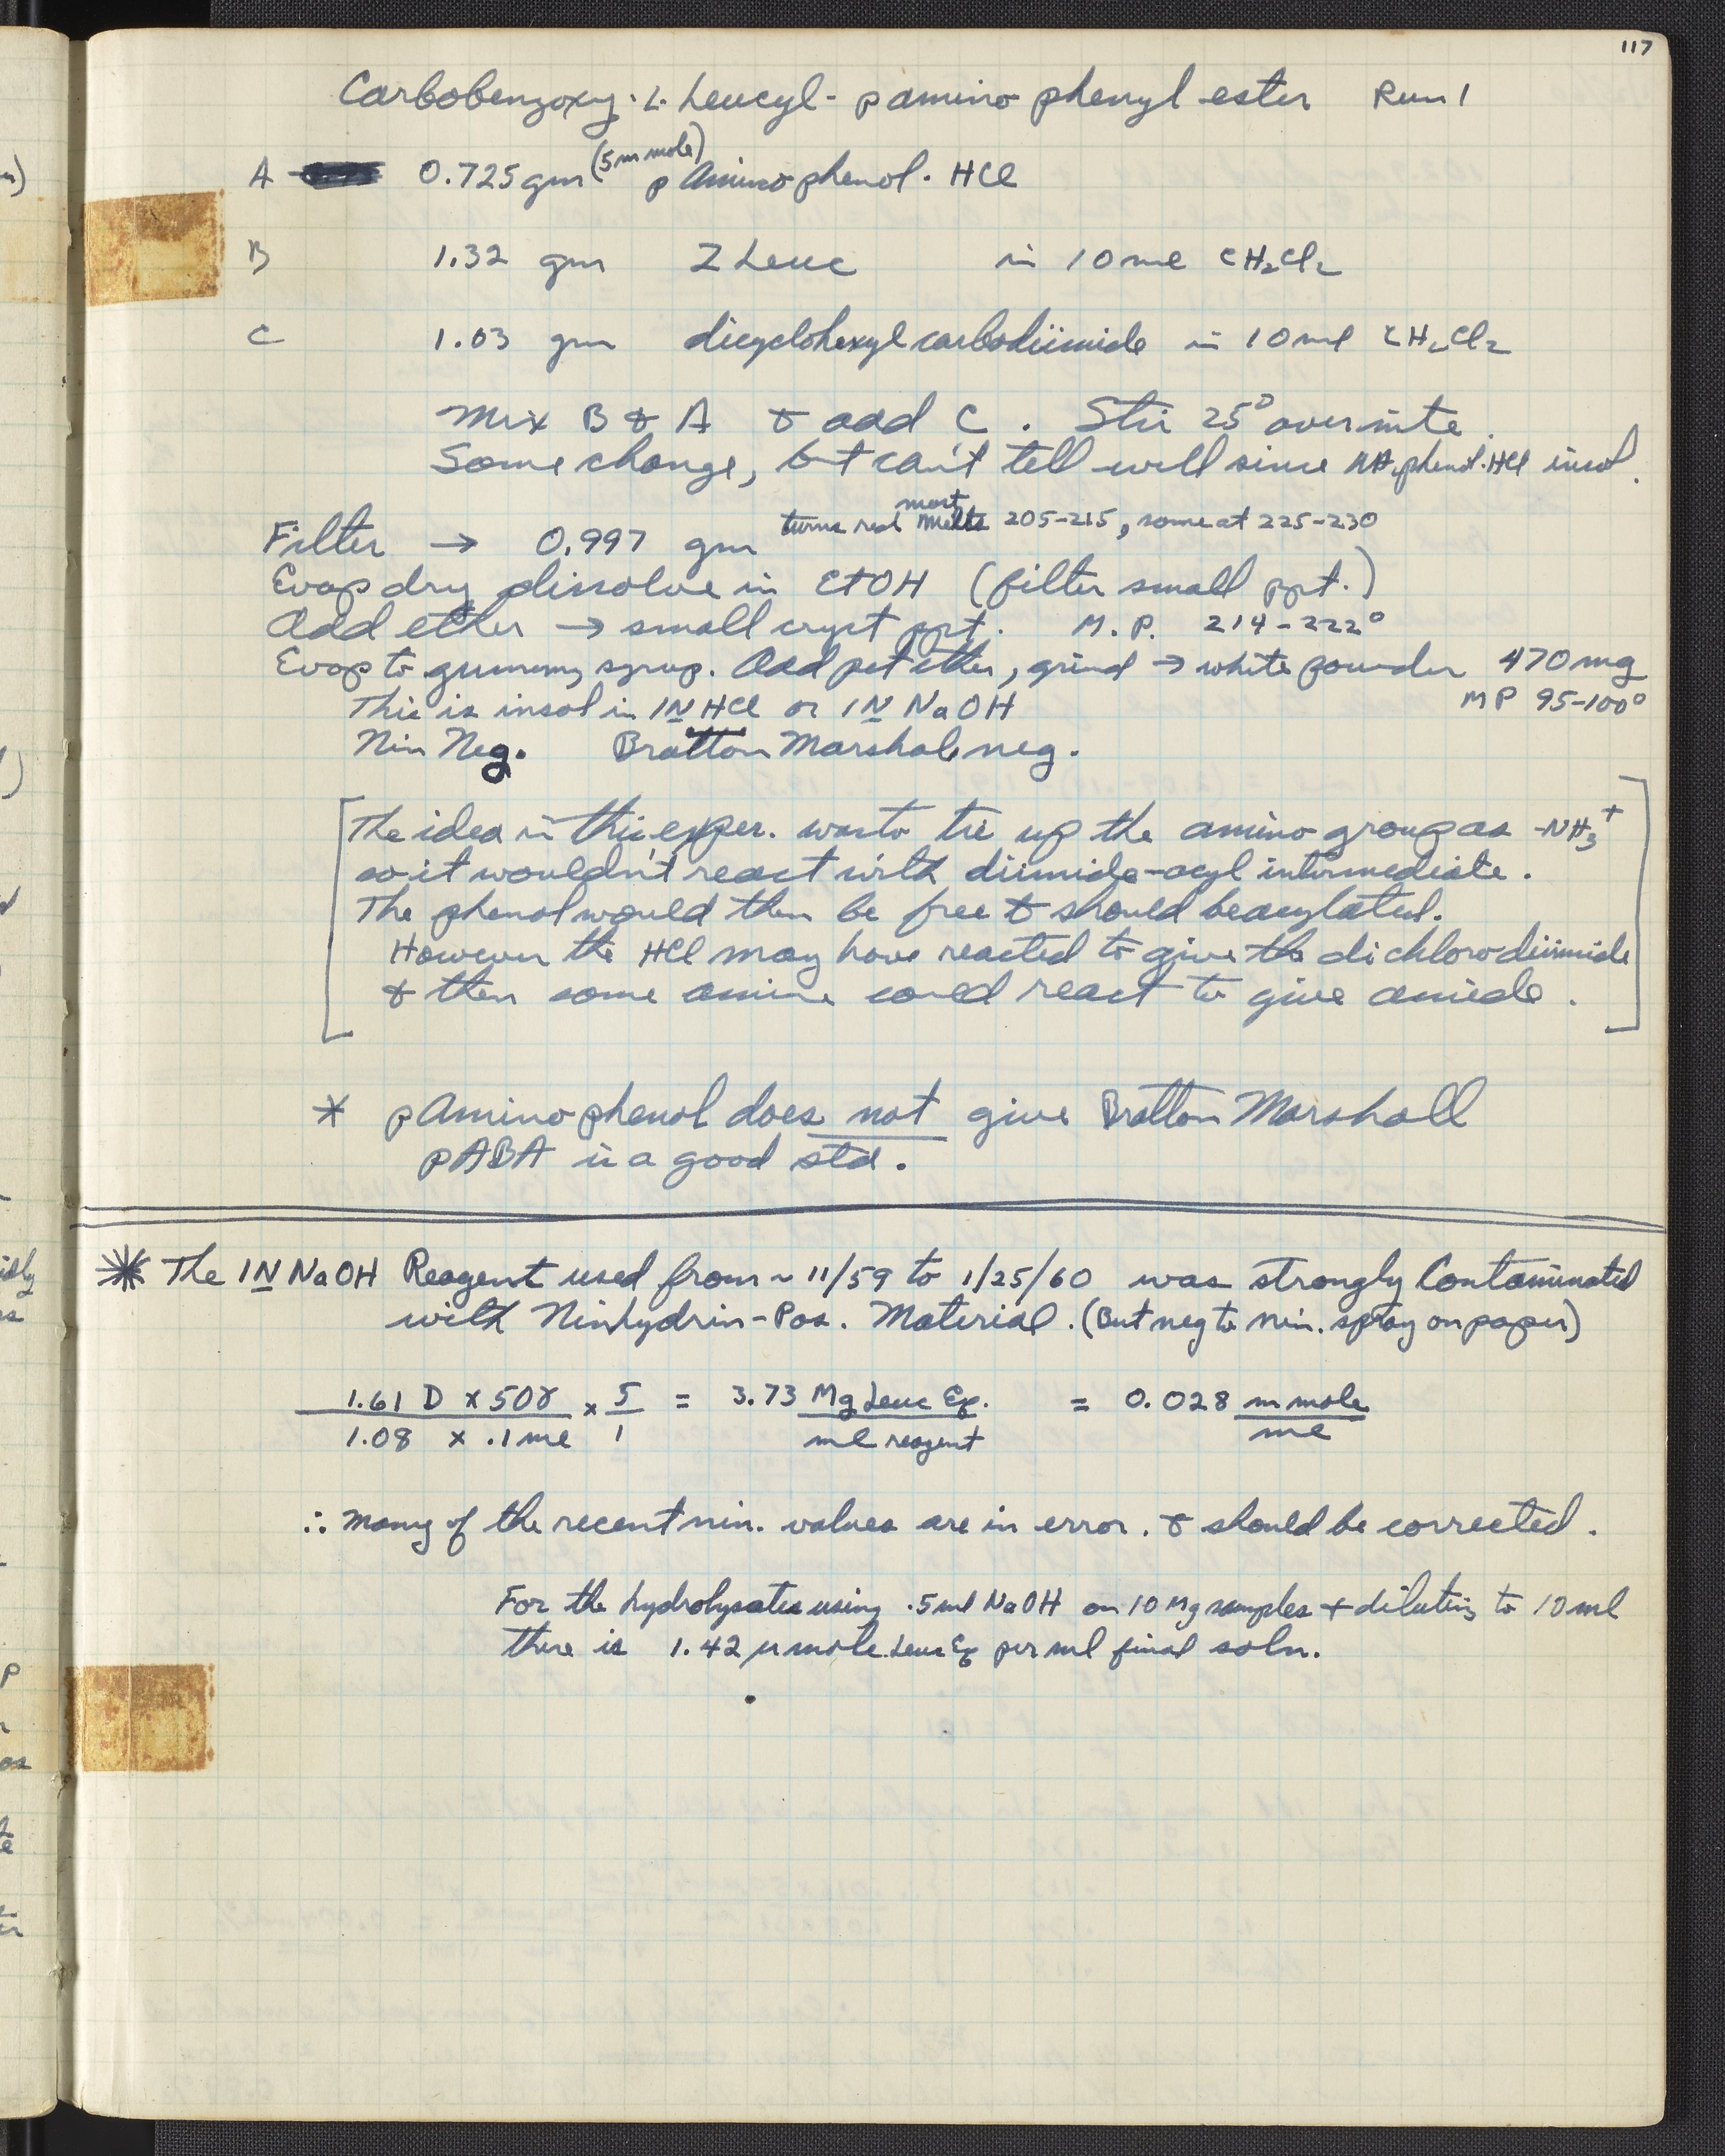 117
Carbobenzoxy-L-Leucyl-p amino phenyl ester Run 1
A 0.725 gm (5 m mole) p Aminophenol·HCl
B 1.32 gm Z Leuc in 10 ml CH2Cl2
C 1.03 gm dicyclohexylcarbodiimide in 10 ml CH2Cl2
Mix B & A & add C. Stir 25° overnite.
Some change, but can't tell well since NH2phenol·HCl insol.
Filter → 0.997 gm turns red most melts 205-215, some at 225-230
Evap dry dissolve in EtOH (filter small ppt.)
Add ether → small cryst ppt. M.P. 214-222°
Evap to gummy syrup. Add pet ether, grind → white powder 470 mg
This is insol in 1N HCl or 1N NaOH MP 95-100°
Nin Neg. Bratton Marshal neg.
[The idea in this exper. was to tie up the amino group as -NH3+
so it wouldn't react with diimide-acyl intermediate.
The phenol would then be free & should be acylated.
However the HCl may have reacted to give the dichlorodiimide
& then some amine could react to give amide.]
* p Aminophenol does not give Bratton Marshall
pABA is a good std.
* The 1N NaOH Reagent used from ~ 11/59 to 1/25/60 was strongly Contaminated
with Ninhydrin-Pos. Material. (But neg to nin. spray on paper)
1.61 D x 50γ / 1.08 x .1 ml x 5/1 = 3.73 Mg Leuc Eq. / ml reagent = 0.028 m mole / ml
∴ many of the recent nin. values are in error. & should be corrected.
For the hydrolysates using .5 ml NaOH on 10 Mg samples & diluting to 10 ml
there is 1.42 μ mole Leuc Eq per ml final soln.